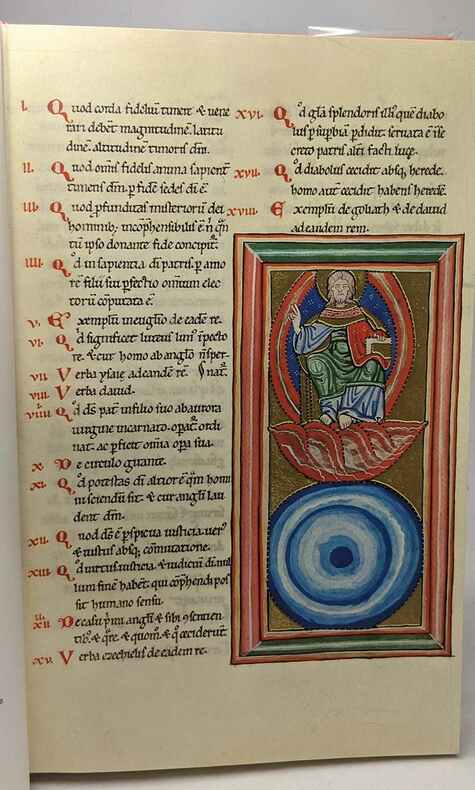 I. Quod corda fidelium timere & vene
rari debent magnitudinē latitu
dinē altitudinē timoris dn̄i.
II. Quod omīs fidelis anima sapient̄
timens dm̄ p̄ fidem sedes dī ē.
III. Quod p̄funditas misterioruͫ dei
hominib; incōphensibilis ē n̄ qn̄
tū ipso donante fide concipit.
IIII. Qd̄ in sapientia dī patris p̄ amo
rē filii sui p̄fectio omnium elec
torū cōputata ē.
V. Exemplū in euglio de eadē re.
VI. Qd̄ significet luteus lim in pecto
re. & cur homo ab anglo n̄ sper
nat.
VII. Verba ysaie ad eandē rē.
VIII. Verba david.
VIIII. Qd̄ ds̄ pat̄ in filio suo ab aurora
virgine incarnato. opat̄ ordi
nat. ac pficit omīa opa sua.
X. De circulo girante.
XI. Qd̄ potestas dī altior ē qm̄ homi
ni sciendū sit. & cur angli lau
dent dm̄.
XII. Quod ds̄ ē p̄spicua iusticia. ver
& iustus absq; cōmutatione.
XIII. Qd̄ virtus iusticia. & iudiciū dī nul
lum finē habet. qui cōphendi pos
sit humano sensu.
XIIII. De casu p̄mi angli & sibi
tib. & q̄re. & quom̄. & q̄ ceciderūt.
XV. Verba ezechielis de eadem re.
XVI. Qd̄ gl̄a splendoris illi quē diabo
lus p̄ supbiā p̄didit. servata ē ī se
creto patris alti facti luce.
XVII. Qd̄ diabolus cecidit absq; herede.
homo aut̄ cecidit habens heredē.
XVIII. Exemplū de goliath & de david
ad eandem rem.